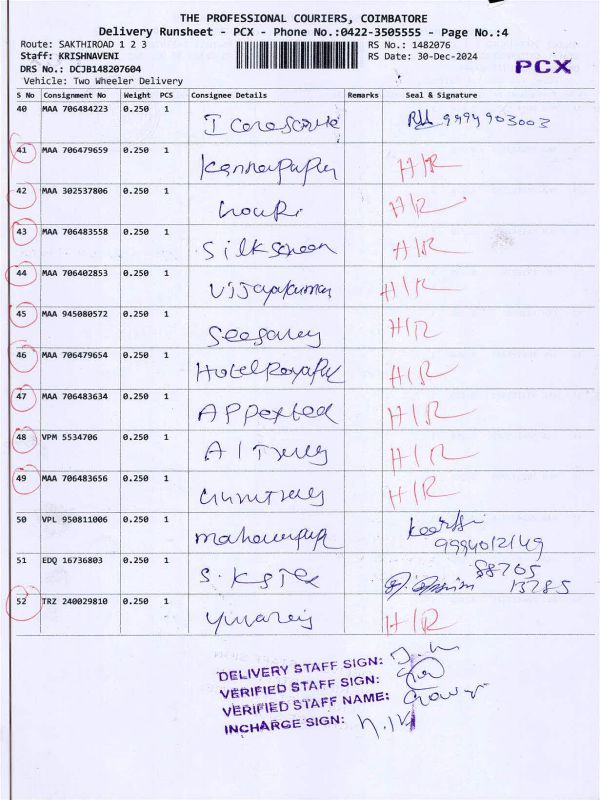 THE PROFESSIONAL COURIERS, COIMBATORE
Delivery Runsheet - PCX - Phone No.:0422-3505555 - Page No.:4
Route: SAKTHIROAD 1 2 3 RS No.: 1482076
Staff: KRISHNAVENI RS Date: 30-Dec-2024
DRS No.: DCJB148207604 PCX
Vehicle: Two Wheeler Delivery
S No Consignment No Weight PCS Consignee Details Remarks Seal & Signature
40 MAA 706484223 0.250 1 9994903003
41 MAA 706479659 0.250 1 H/R
42 MAA 302537806 0.250 1 H/R
43 MAA 706483558 0.250 1 Silkscreen H/R
44 MAA 706402853 0.250 1 Vijayakumar H/R
45 MAA 945080572 0.250 1 H/R
46 MAA 706479654 0.250 1 Hotel H/R
47 MAA 706483634 0.250 1 H/R
48 VPM 5534706 0.250 1 H/R
49 MAA 706483656 0.250 1 H/R
50 VPL 950811006 0.250 1
9994012149
51 EDQ 16736803 0.250 1 88705
13785
52 TRZ 240029810 0.250 1 H/R
DELIVERY STAFF SIGN:
VERIFIED STAFF SIGN:
VERIFIED STAFF NAME:
INCHARGE SIGN: